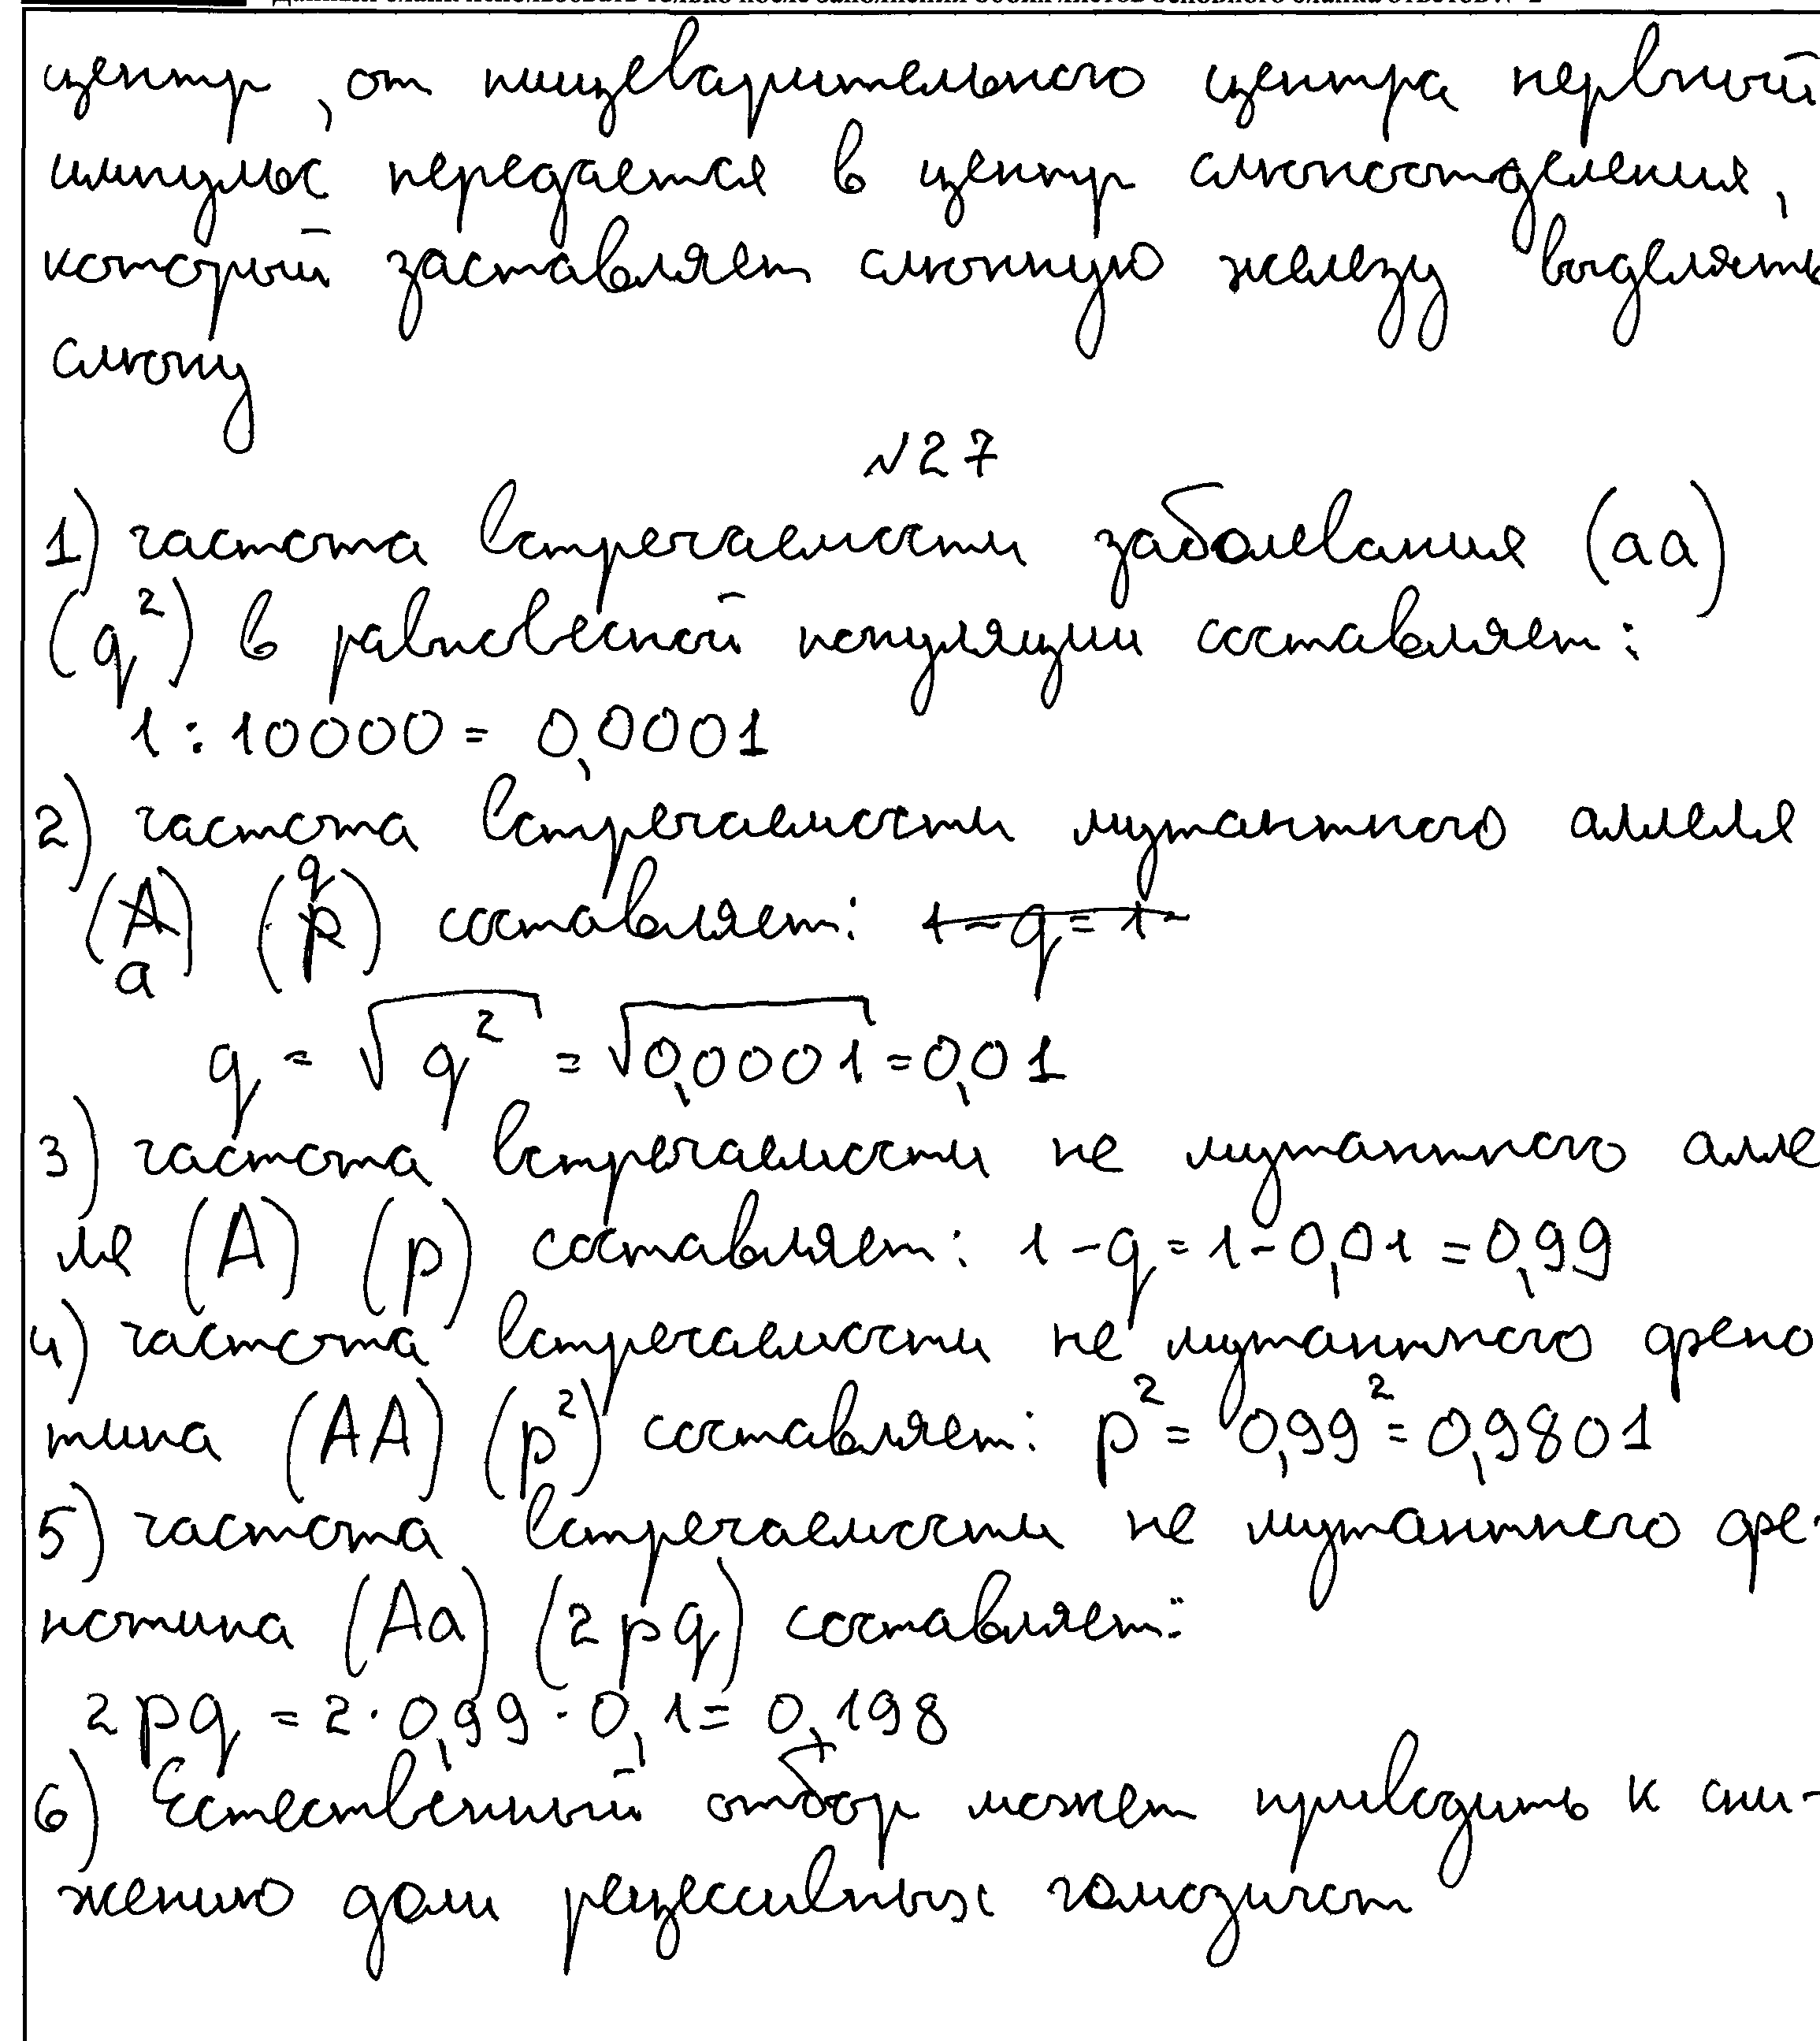 центр, от пищеварительного центра нервный
импульс передается в центр слюноотделения,
который заставляет слюнную железу выделять
слюну
№27
1) частота встречаемости заболевания (аа)
(q²) в равновесной популяции составляет:
1 : 10000 = 0,0001
2) частота встречаемости мутантного аллеля
(a) (q) составляет: 1 - q = 1 -
q = √q² = √0,0001 = 0,01
3) частота встречаемости не мутантного алле
ля (A) (p) составляет: 1 - q = 1 - 0,01 = 0,99
4) частота встречаемости не мутантного фено
типа (AA) (p²) составляет: p² = 0,99² = 0,9801
5) частота встречаемости не мутантного фе-
нотипа (Aa) (2pq) составляет:
2pq = 2 · 0,99 · 0,1 = 0,198
6) Естественный отбор может приводить к сни-
жению доли рецессивных гомозигот